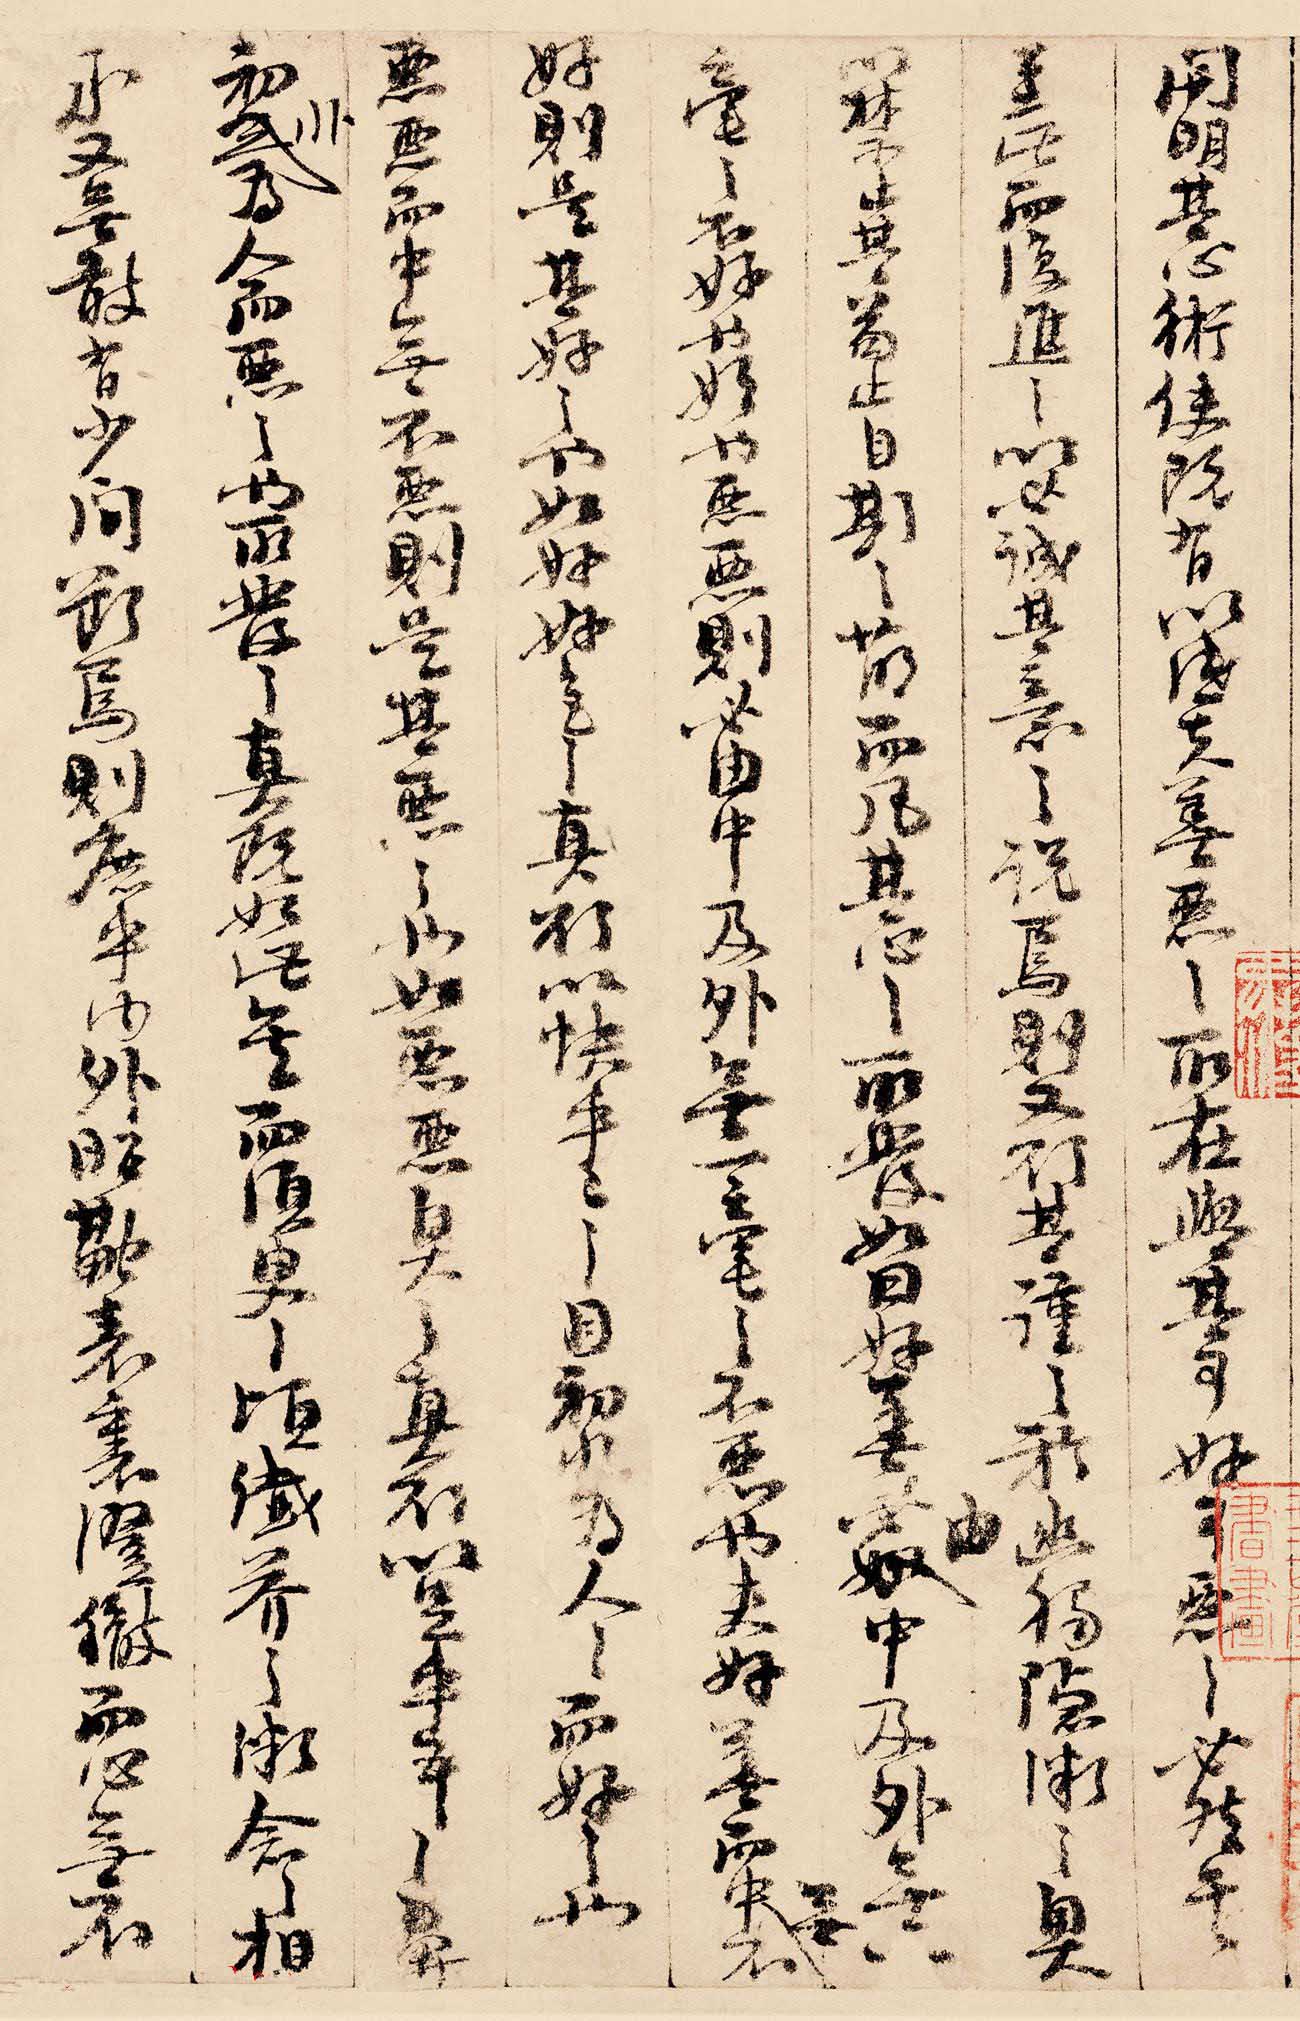 開明其心術使既有以識夫善惡之所在與其可好可惡之必然矣
至此而復進之以必誠其意之說焉則又欲其謹之於幽獨隱微之奧
以禁止其苟且自欺之萌而凡其心之所發如曰好善必由中及外無一
毫之不好也惡惡則必由中及外無一毫之不惡也夫好善而中無不
好則是其好之也如好好色之真欲以快乎己之目初非為人而好之也
惡惡而中無不惡則是其惡之也如惡惡臭之真欲以足乎己之鼻
初非為人而惡之也所發之真既如此矣而須臾之頃纖芥之微念念相
承又無敢有少間斷焉則庶乎內外昭融表裏澄徹而心無不
書畫